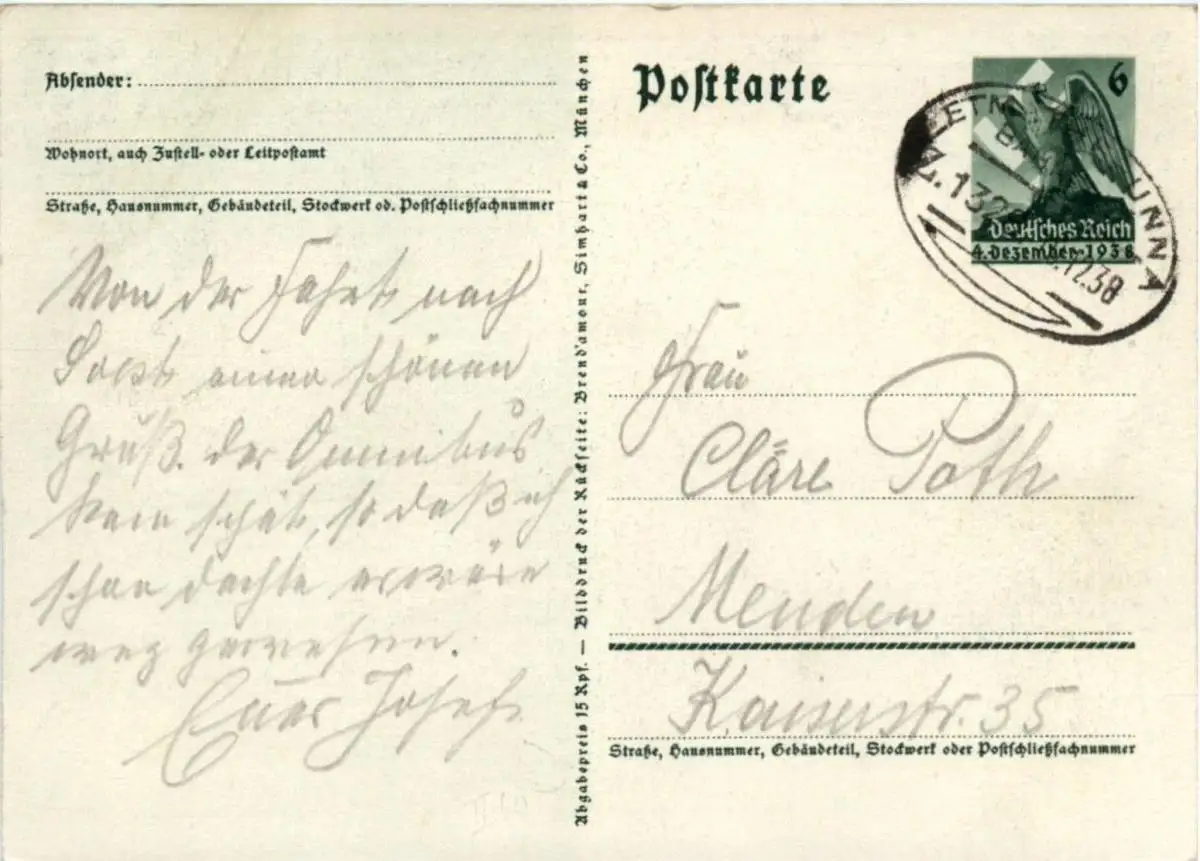 Absender:
Wohnort, auch Zustell- oder Leitpostamt
Straße, Hausnummer, Gebäudeteil, Stockwerk od. Postschließfachnummer
Von der Fahrt nach
Soest einen schönen
Gruß. Der Omnibus
kam spät, so daß ich
schon dachte er wäre
weg gewesen.
Euer Josef
Abgabepreis 15 Rpf. — Bilddruck der Rückseite: Brend'amour, Simhart & Co., München
Postkarte
6
Deutsches Reich
4. Dezember 1938
LETM UNNA
BAH
Z.132
.12.38
Frau
Cläre Poth
Menden
Kaiserstr. 35
Straße, Hausnummer, Gebäudeteil, Stockwerk oder Postschließfachnummer